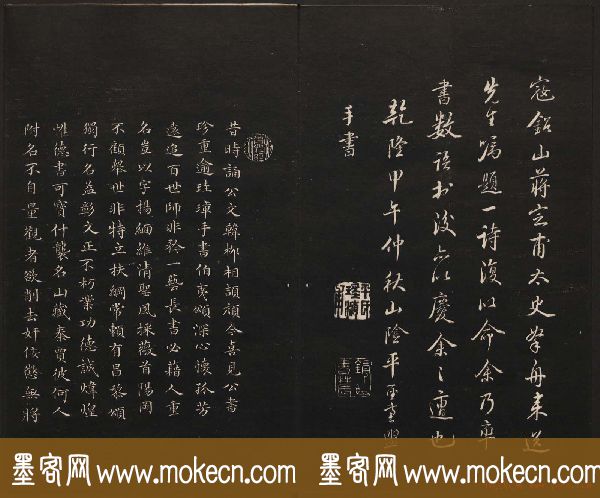 鉛山蔣定甫太史拏舟来送
先生属題一詩復以命余乃率
書數語於後亦以慶余之遭也
乾隆甲午仲秋山陰平聖臺
手書
昔時誦公文韓柳相頡頏今喜見公書
珍重逾珪璋手書伯夷頌深心懷孤芳
遠追百世師非矜一藝長書必藉人重
名豈以字揚緬維清聖風採薇首陽岡
不顧舉世非特立扶綱常賴有昌黎頌
獨行名益彰文正不朽業功德誠煒煌
惟德書可寶什襲名山藏秦賈彼何人
附名不自量觀者欲削去奸佞懲無將
墨客网 www.mokecn.com 墨客网 www.mokecn.com